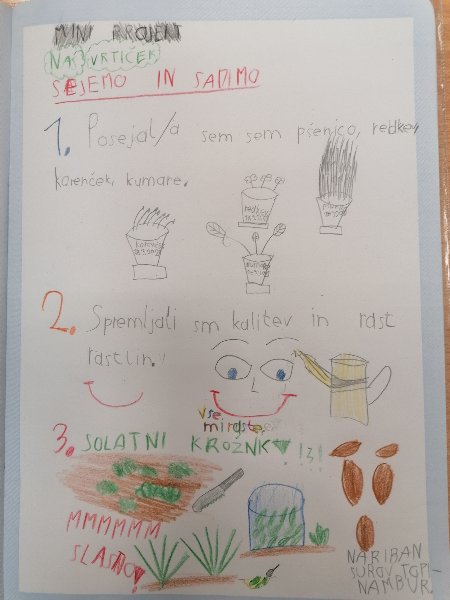 MINI PROJEKT
NAŠ VRTIČEK
SEJEMO IN SADIMO
1. Posejal/a sem sem pšenico, redkev,
korenček, kumare.
2. Spremljali sm kalitev in rast
rastlin.
vse
mi raste
3. SOLATNI KROŽNK
MMMMMM
SLASNO!
NARIBAN
SUROV TOPI-
NAMBUR.